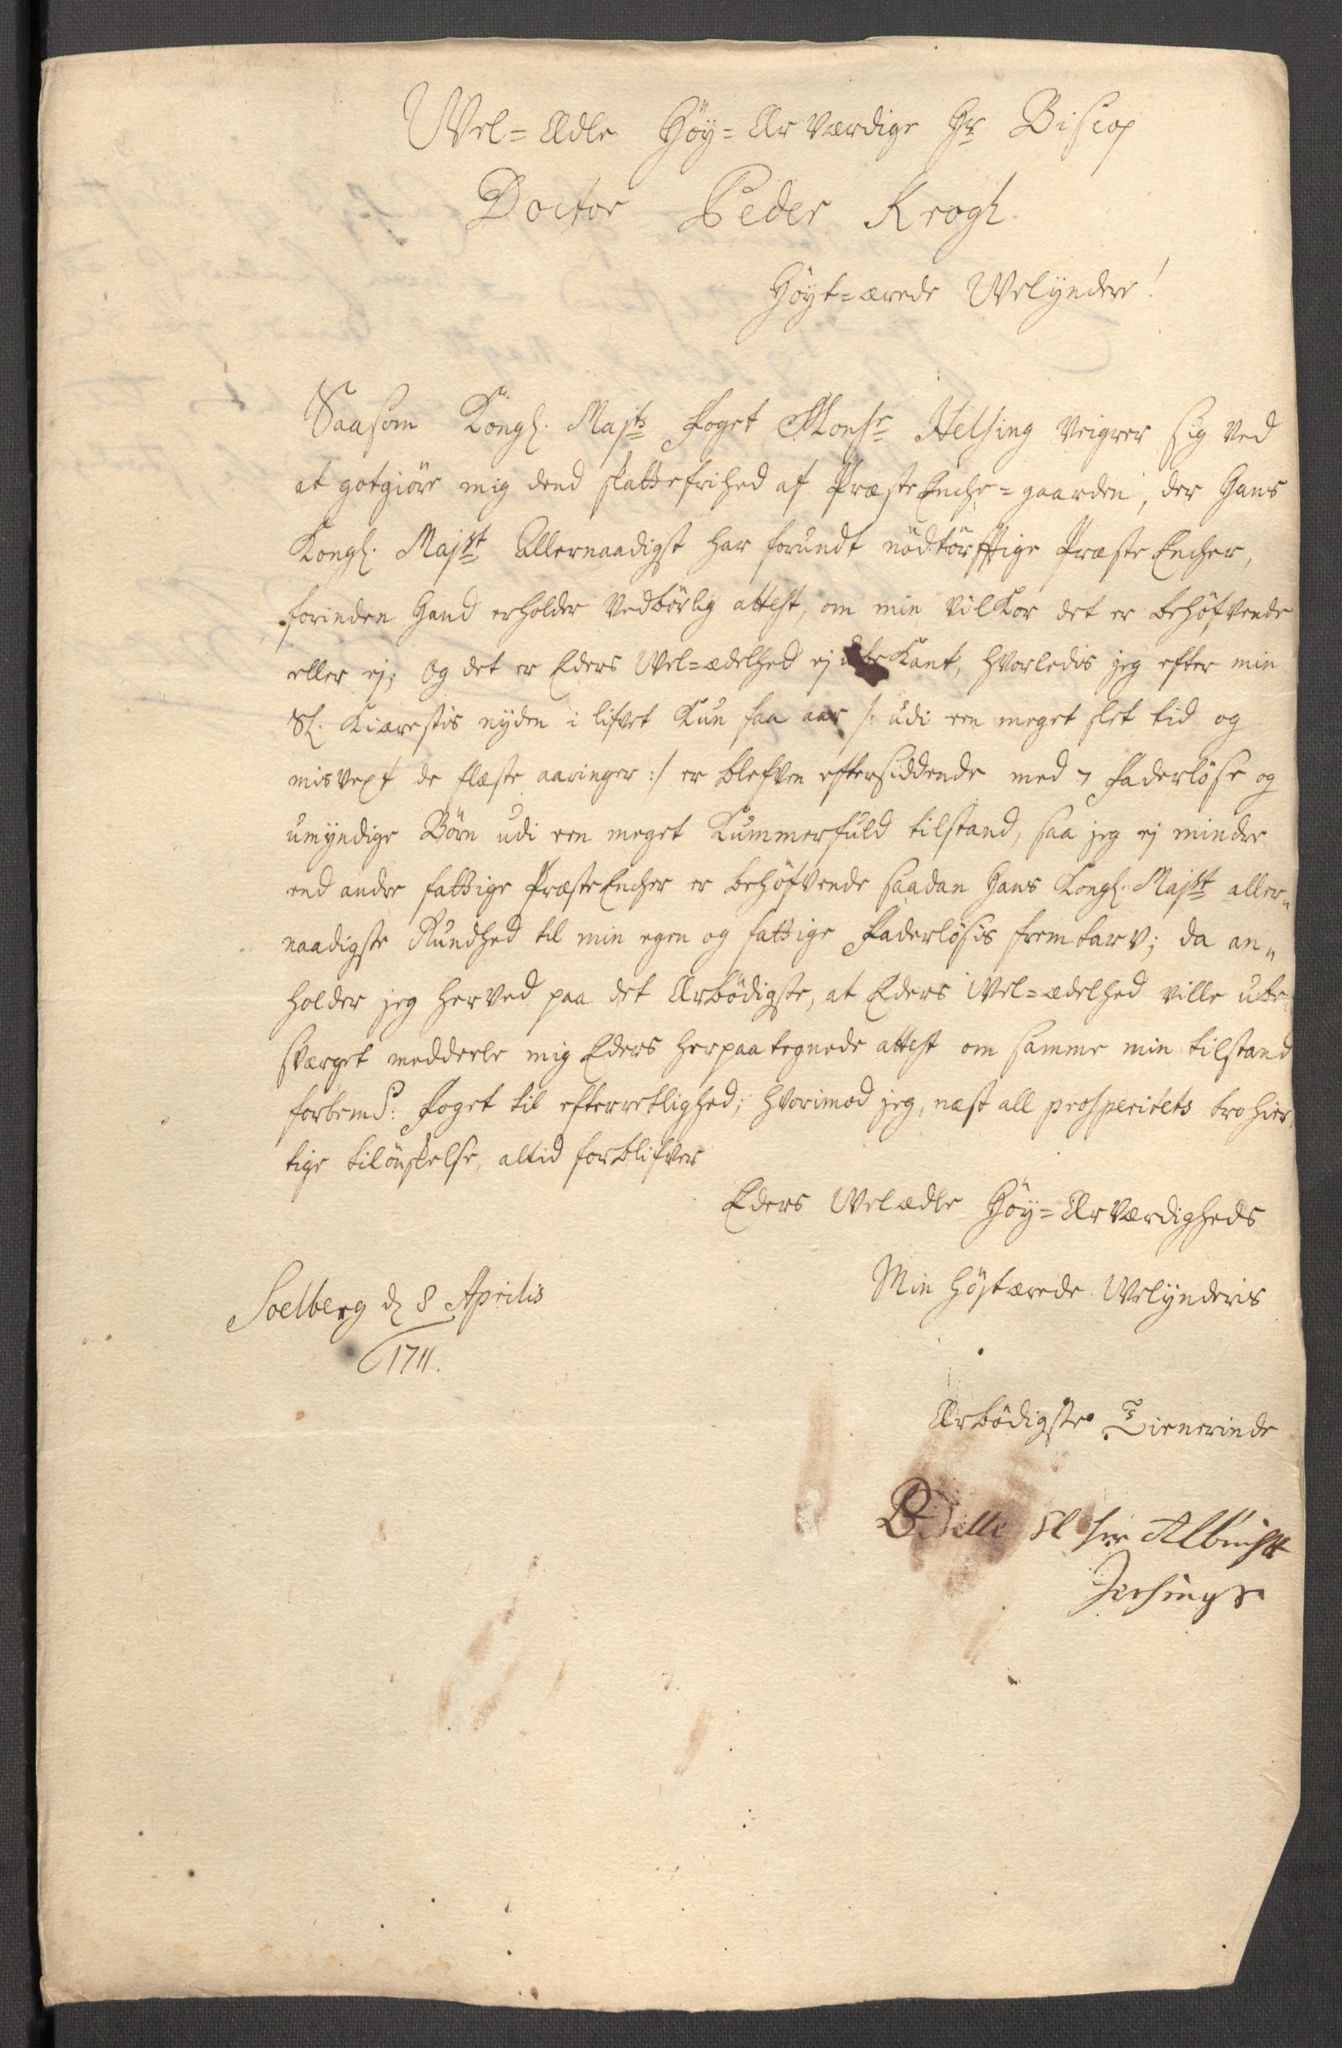 Wel=Ædle Höy=Ærværdige Hr Biscop
Doctor Peder Krogh.
Höyt=ærede Welyndere!
Saasom Kongl. Majts Foget Monsr Helsing veigrer sig ved
at gotgiöre mig dend skattefrihed af PræsteEncke=gaarden, der Hans
Kongl. Majtt Allernaadigst har forundt nödtörfftige PræsteEncker,
forinden Hand erholder vedbörlig attest, om min vilkor det er behöfvende
eller ej; Og det er Eders Wel=ædelhed ej ubekant, hvorledis jeg efter min
Sl. Kiærestis nyden i lifvet kun faa aar /: udi een meget slet tid og
misvext de flæste aaringer :/ er blefven eftersiddende med 7 Faderlöse og
umyndige Börn udi een meget kummerfuld tilstand, saa jeg ej mindre
end andre fattige PræsteEncker er behöfvende saadan Hans Kongl. Majtt aller„
naadigste Kundhed til min egen og fattige Faderlösis fremtarv; da an„
holder jeg herved paa det Ærbödigste, at Eders Wel=ædelhed ville ube„
sværget meddeele mig Eders herpaategnede attest om samme min tilstand
forbemt: Foget til efterretlighed; hvorimod jeg, næst all prosperitets trohier„
tige tilönskelse, altid forblifver
Eders Welædle Höy=Ærværdigheds
Min höjtærede Welynderis
Soelberg d 8 Aprilis
1711.
Ærbödigste Tienerinde
Sl her Albricht